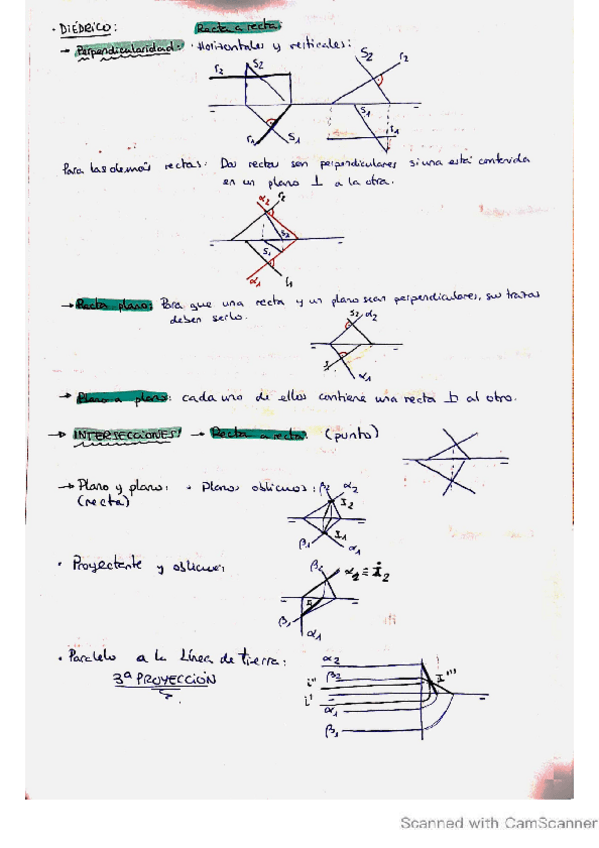 · DIÉDRICO: Recta a recta:
→ Perpendicularidad: · Horizontales y verticales:
r2 S2 S2 r2
r1 S1 S1 r1
Para las demás rectas: Dos rectas son perpendiculares si una está contenida
en un plano ⊥ a la otra.
α2 r2
S2
S1
α1 r1
→ Recta plano: Para que una recta y un plano sean perpendiculares, sus trazas
deben serlo.
S2 α2
α1
→ Plano a plano: cada uno de ellos contiene una recta ⊥ al otro.
→ INTERSECCIONES: → Recta a recta: (punto)
→ Plano y plano: · Planos oblicuos: β2 α2
(recta) I2
β1 I1 α1
· Proyectante y oblicuo: β2 α2 ≡ I2
β1 α1
· Paralelo a la línea de tierra: α2
3ª PROYECCIÓN β2 I'''
i''
i'
α1
β1
Scanned with CamScanner